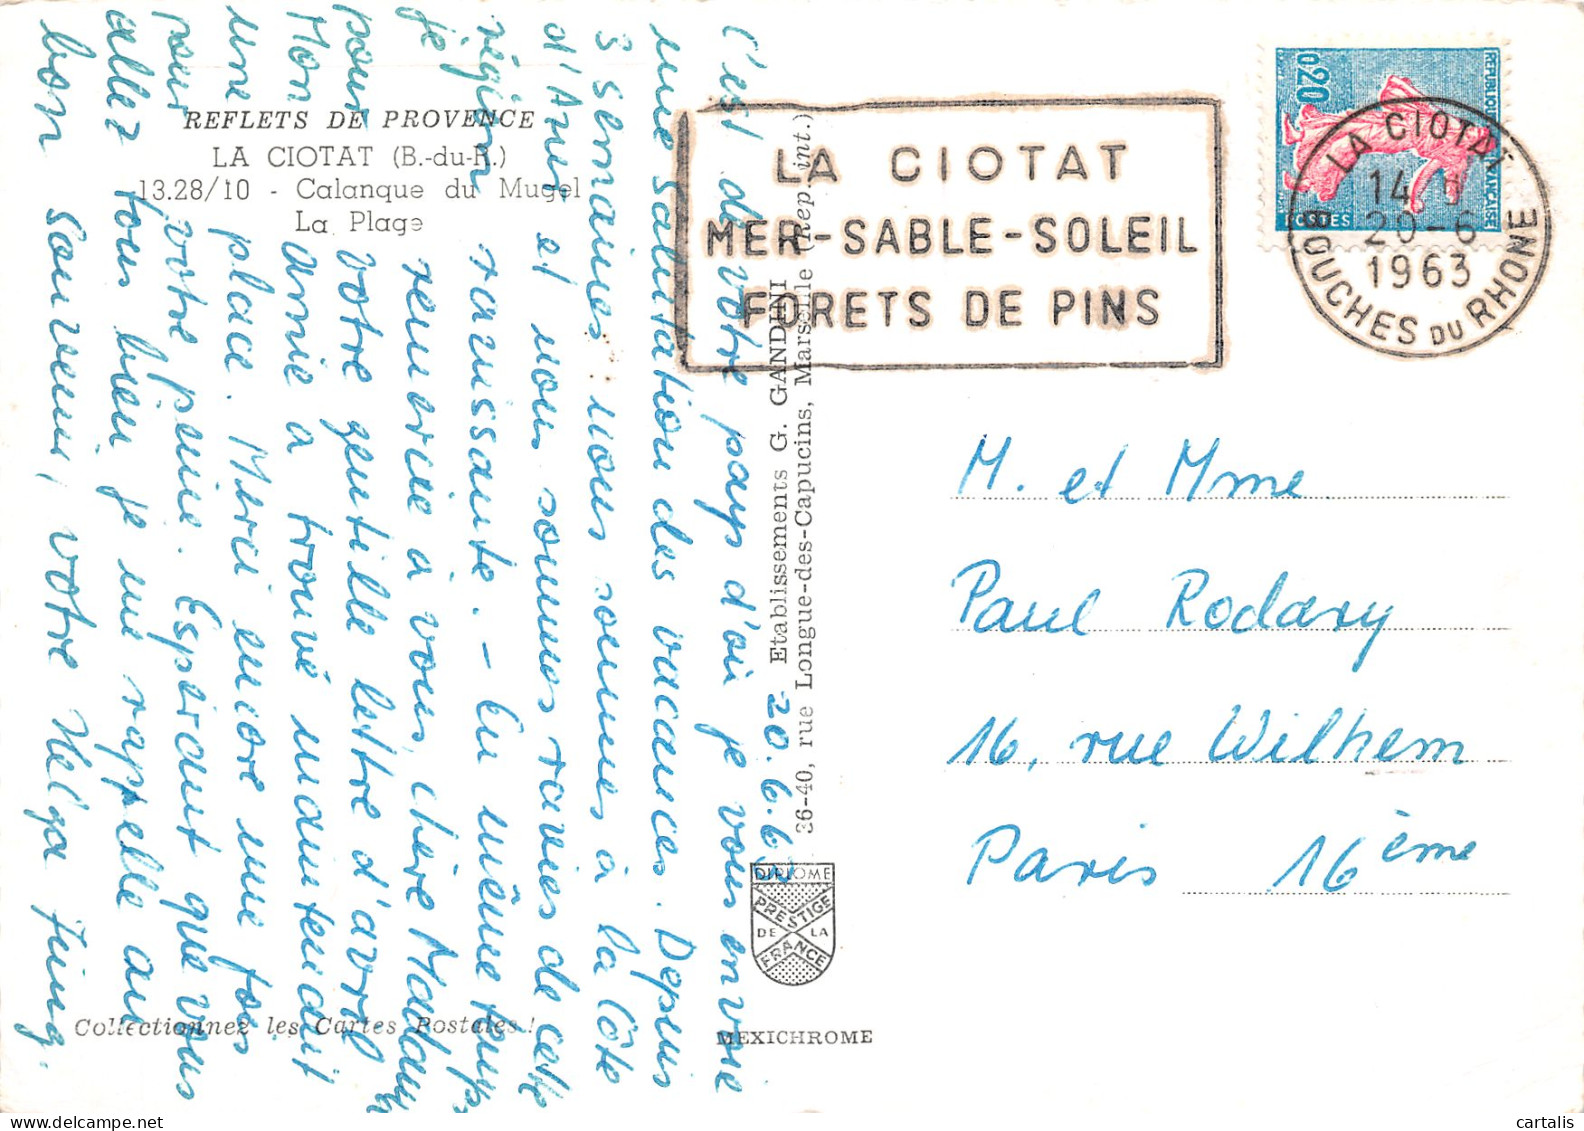 REFLETS DE PROVENCE
LA CIOTAT (B.-du-R.)
13.28/10 - Calanque du Mugel
La Plage
20.6.63
C'est de votre pays d'où je vous envoie
une salutation des vacances. Depuis
3 semaines nous sommes à la Côte
d'Azur et nous sommes ravies de cette
région ravissante. - En même temps
je remercie à vous, chère Madame,
pour votre gentille lettre d'avril.
Mon amie a trouvé maintenant
une place. Merci encore une fois
pour votre peine. Espérant que vous
allez tous bien je me rappelle au
bon souvenir, votre Helga Jung.
Collectionnez les Cartes Postales!
Etablissements G. GANDINI
36-40, rue Longue-des-Capucins, Marseille (Rep. int.)
DIPLOME
PRESTIGE
DE LA
FRANCE
MEXICHROME
LA CIOTAT
MER-SABLE-SOLEIL
FORETS DE PINS
0,20
REPUBLIQUE FRANÇAISE
POSTES
LA CIOTAT
14 H
20-6
1963
BOUCHES DU RHONE
M. et Mme
Paul Rodary
16, rue Wilhem
Paris 16ème
cartalis
www.delcampe.net